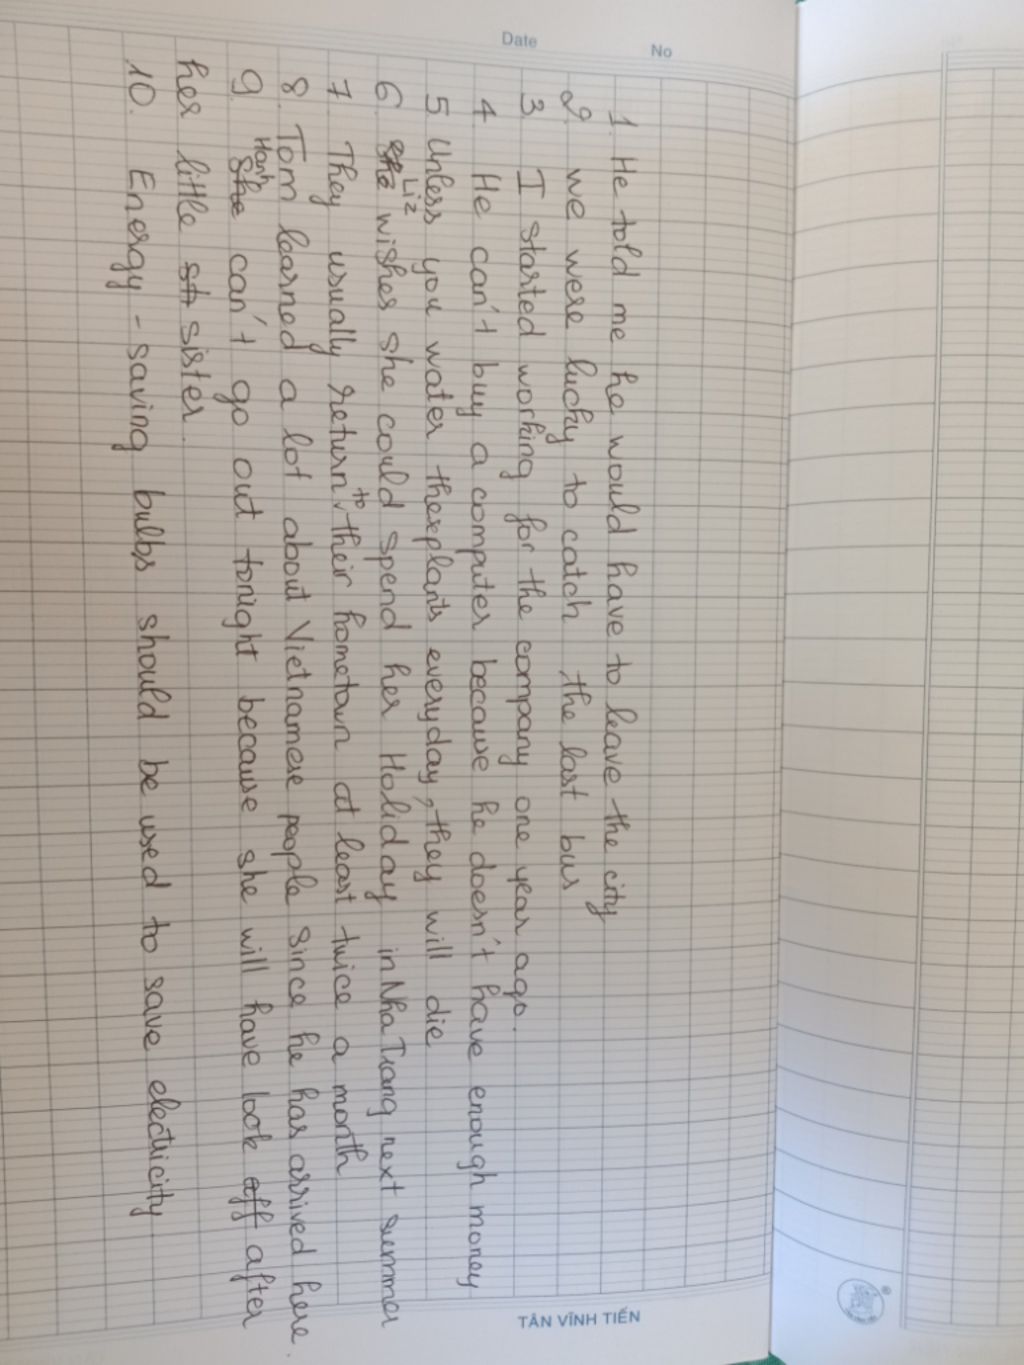 Date No
1. He told me he would have to leave the city
2. we were lucky to catch the last bus
3. I started working for the company one year ago.
4 He can't buy a computer because he doesn't have enough money
5 Unless you water the plants everyday, they will die
6 Liz wishes she could spend her Holiday in Nha Trang next summer
7 They usually return to their hometown at least twice a month
8. Tom learned a lot about Vietnamese people since he has arrived here.
9. Hanh can't go out tonight because she will have look after
her little sister.
10. Energy-saving bulbs should be used to save electricity
TÂN VĨNH TIẾN